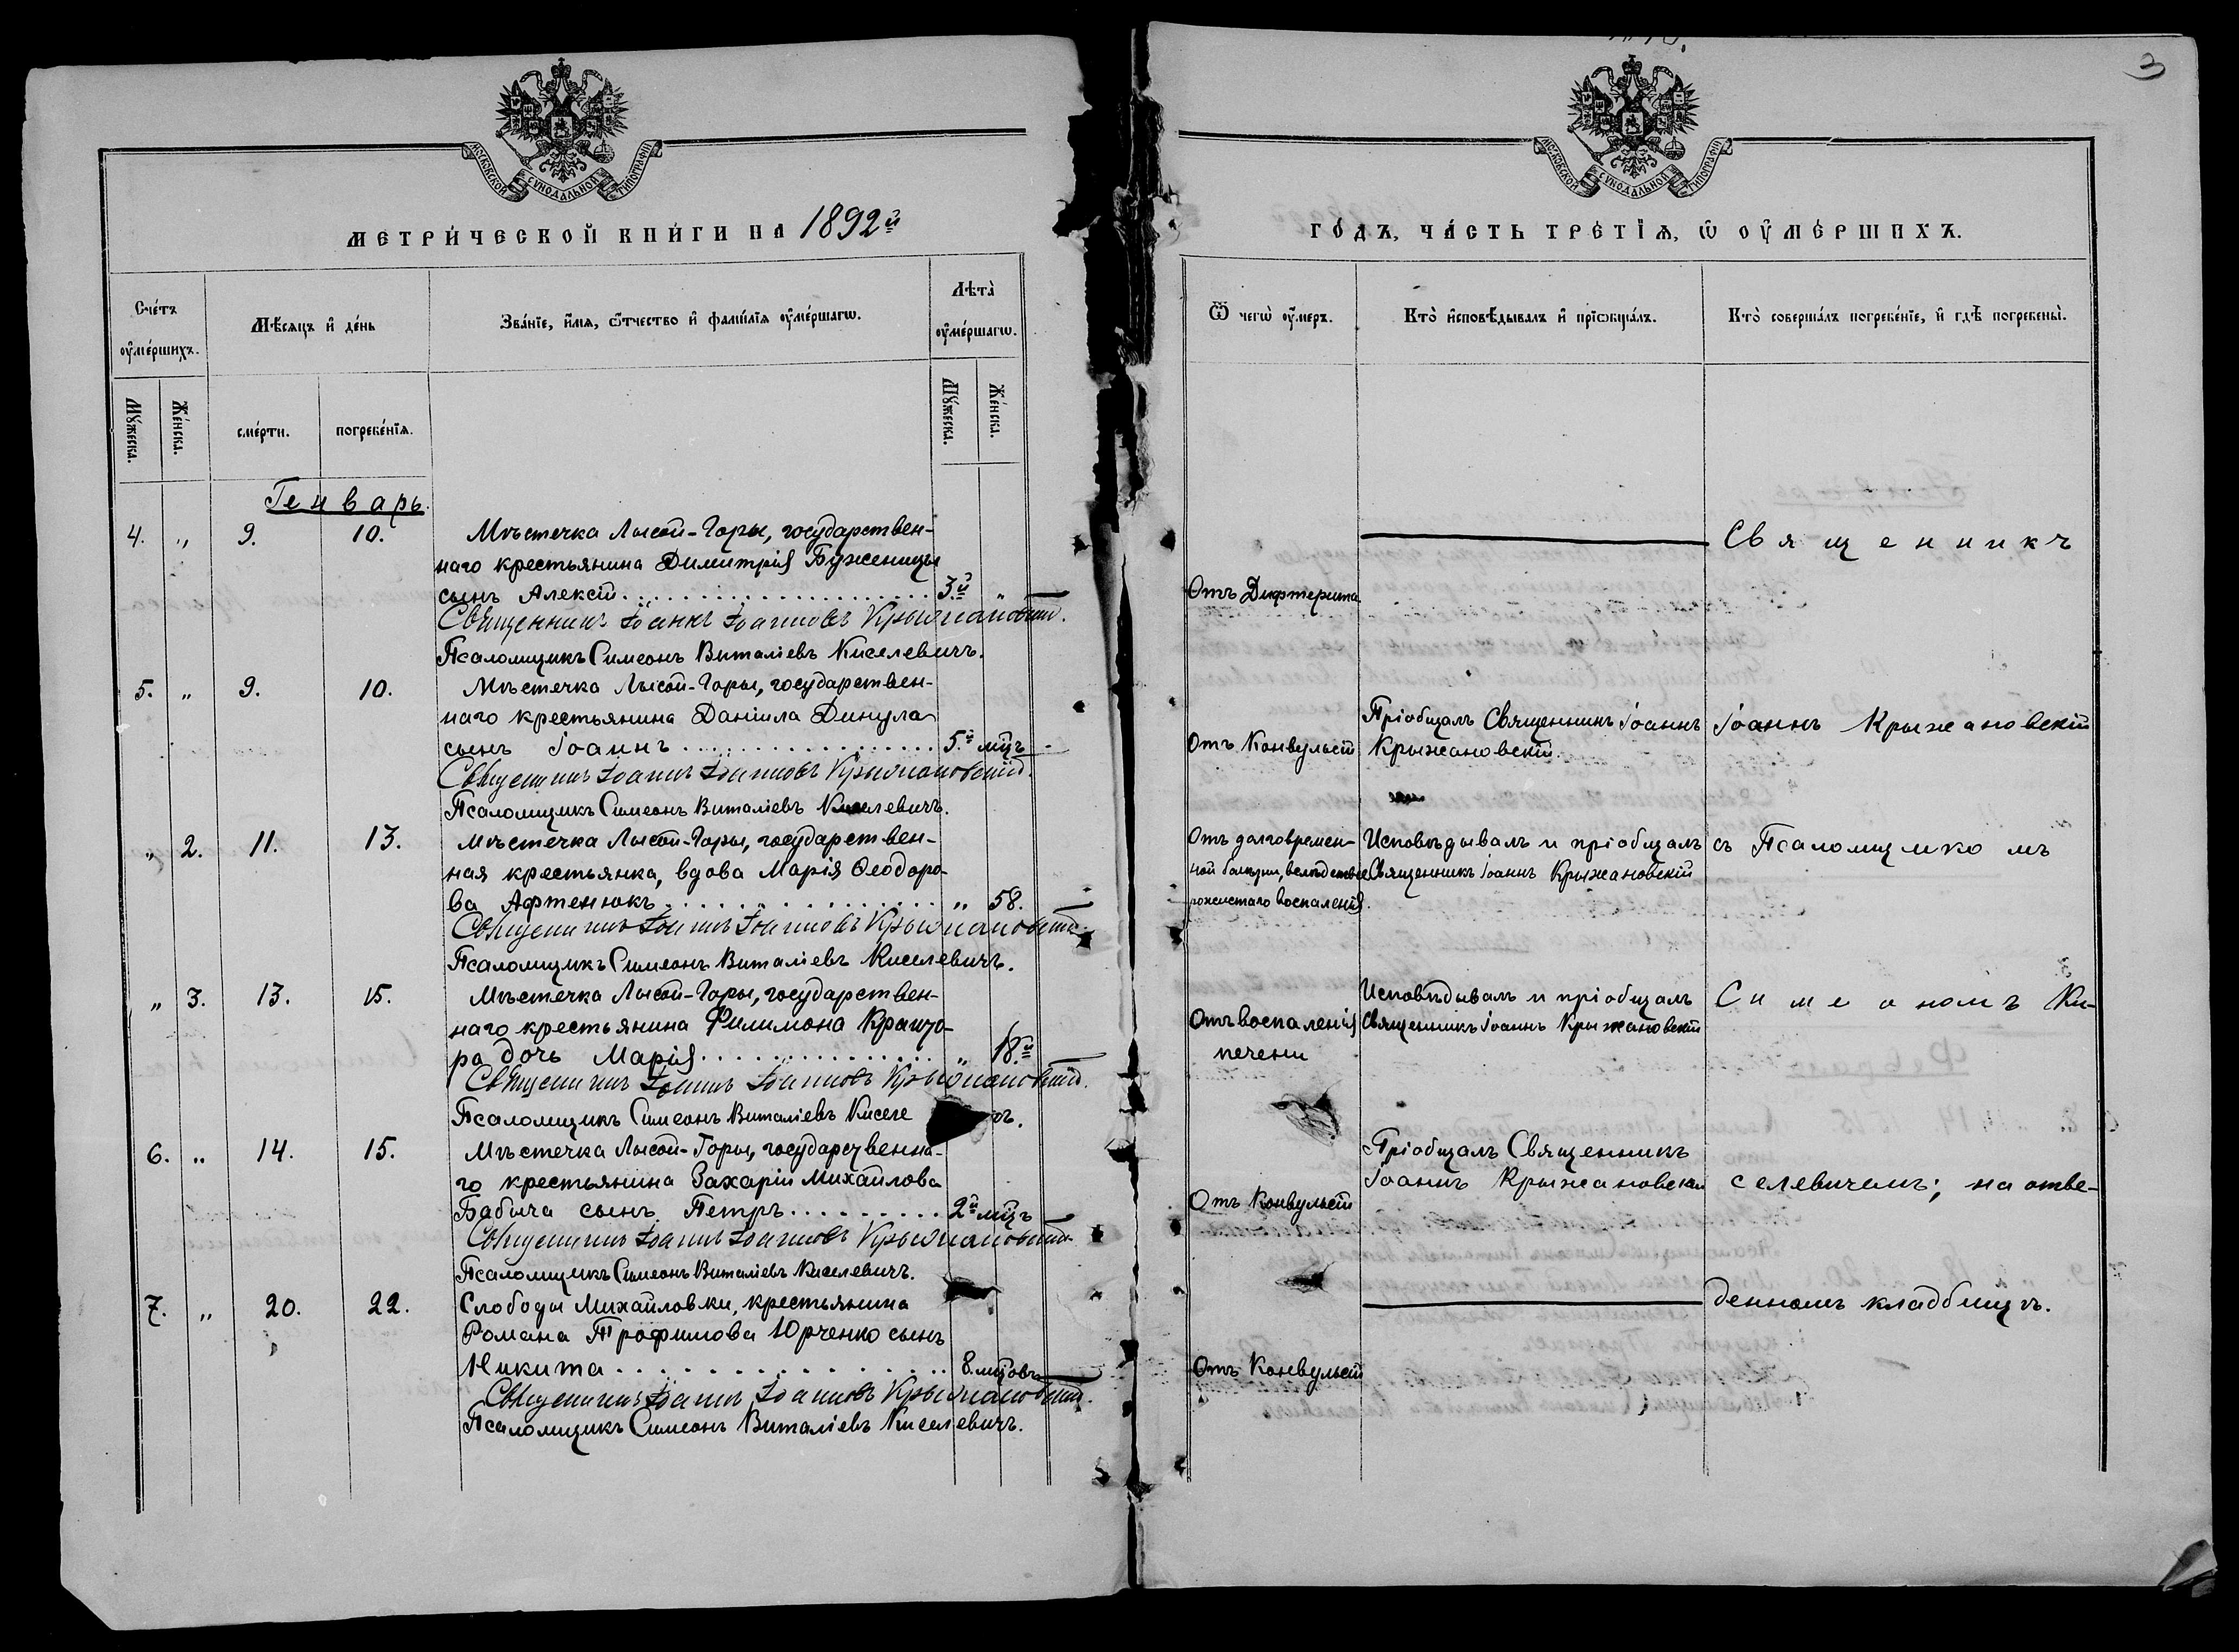 МОСКОВСКОЙ СѴНОДАЛЬНОЙ ТИПОГРАФІИ
МЕТРИ́ЧЕСКОЙ КНИ́ГИ НА 1892й
Сче́тъ ᲂу҆ме́ршихъ.
Мѣ́сяцъ и҆ де́нь
Зва́нїе, и҆́мѧ, ѻ҆́тчество и҆ фамѝлїѧ ᲂу҆ме́ршагѡ.
Лѣта̀ ᲂу҆ме́ршагѡ.
Мꙋ́жеска.
Же́нска.
сме́рти.
погребе́нїѧ.
Мꙋ́жеска.
Же́нска.
Генварь.
4. „ 9. 10. Мѣстечка Лысой-Горы, государствен-
наго крестьянина Димитрія Буженицы
сынъ Алексій 3.й „
Священникъ Іоаннъ Іоанновъ Крыжановскій.
Псаломщикъ Симеонъ Виталіевъ Киселевичъ.
5. „ 9. 10. Мѣстечка Лысой-Горы, государствен-
наго крестьянина Даніила Динула
сынъ Іоаннъ 5.й мцъ
Священникъ Іоаннъ Іоанновъ Крыжановскій.
Псаломщикъ Симеонъ Виталіевъ Киселевичъ.
„ 2. 11. 13. Мѣстечка Лысой-Горы, государствен-
ная крестьянка, вдова Марія Ѳеодоро-
ва Афтенюкъ „ 58.
Священникъ Іоаннъ Іоанновъ Крыжановскій.
Псаломщикъ Симеонъ Виталіевъ Киселевичъ.
„ 3. 13. 15. Мѣстечка Лысой-Горы, государствен-
наго крестьянина Филимона Крашо-
ра дочь Марія „ 18.й
Священникъ Іоаннъ Іоанновъ Крыжановскій.
Псаломщикъ Симеонъ Виталіевъ Киселе чъ.
6. „ 14. 15. Мѣстечка Лысой-Горы, государственна-
го крестьянина Захарій Михайлова
Бабича сынъ Петръ 2й мцъ
Священникъ Іоаннъ Іоанновъ Крыжановскій.
Псаломщикъ Симеонъ Виталіевъ Киселевичъ.
7. „ 20. 22. Слободы Михайловки, крестьянина
Романа Трофимова Юрченко сынъ
Никита 8. мцовъ
Священникъ Іоаннъ Іоанновъ Крыжановскій.
Псаломщикъ Симеонъ Виталіевъ Киселевичъ.
3
МОСКОВСКОЙ СѴНОДАЛЬНОЙ ТИПОГРАФІИ
ГО́ДЪ, ЧА́СТЬ ТРЕ́ТЇѦ, Ѡ ОУ҆МЕ́РШИХЪ.
Ѿ чегѡ̀ ᲂу҆́меръ.
Кто̀ и҆сповѣ́дывалъ и҆ прїѡбща́лъ.
Кто̀ соверша́лъ погребе́нїе, и҆ гдѣ̀ погребены̀.
Отъ Дифтерита
Отъ Конвульсій
Пріобщалъ Священникъ Іоаннъ
Крыжановскій.
Отъ долговремен-
ной болѣзни, вслѣдствіе
рожистаго воспаленія.
Исповѣдывалъ и пріобщалъ
Священникъ Іоаннъ Крыжановскій
Отъ воспаленія
печени
Исповѣдывалъ и пріобщалъ
Священникъ Іоаннъ Крыжановскій
Отъ Конвульсій
Пріобщалъ Священникъ
Іоаннъ Крыжановскій
Отъ Конвульсій
Священникъ
Іоаннъ Крыжановскій
съ Псаломщикомъ
Симеономъ Ки-
селевичемъ; на отве-
денномъ кладбищѣ.